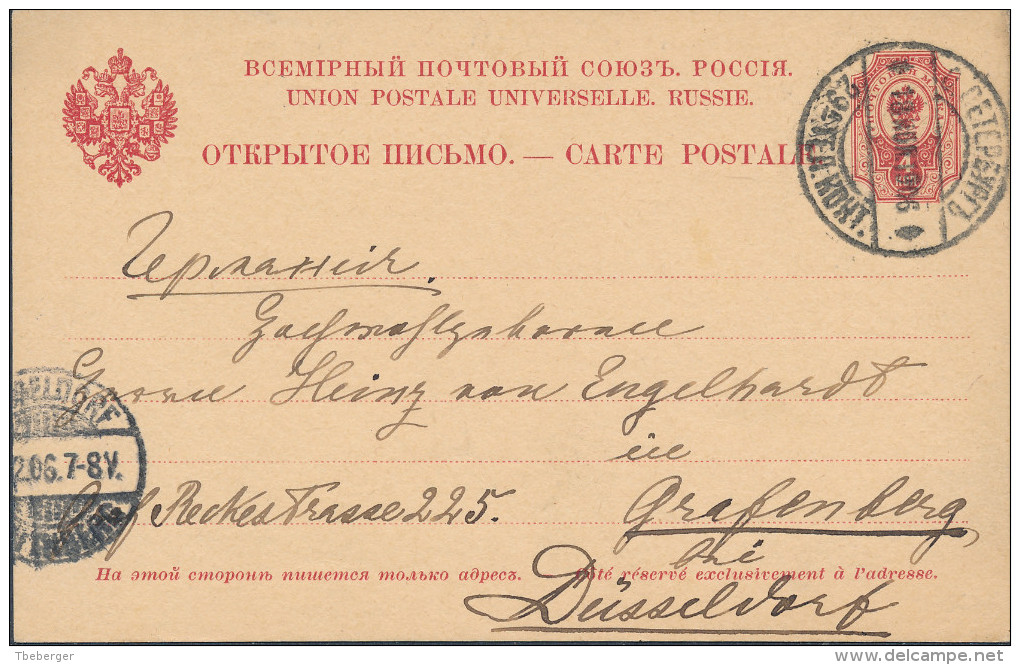 ВСЕМІРНЫЙ ПОЧТОВЫЙ СОЮЗЪ. РОССІЯ.
UNION POSTALE UNIVERSELLE. RUSSIE.
ОТКРЫТОЕ ПИСЬМО. — CARTE POSTALE
ПОЧТОВАЯ МАРКА
ПЕТЕРБУРГЪ
Германія.
Hochwohlgeboren
Herrn Heinz von Engelhardt
in
Graf Reckestrasse 225.
Grafenberg
bei
Düsseldorf
2.06.7-8V.
На этой сторонѣ пишется только адресъ.
Côté réservé exclusivement à l'adresse.
Tberger
delcampe.net